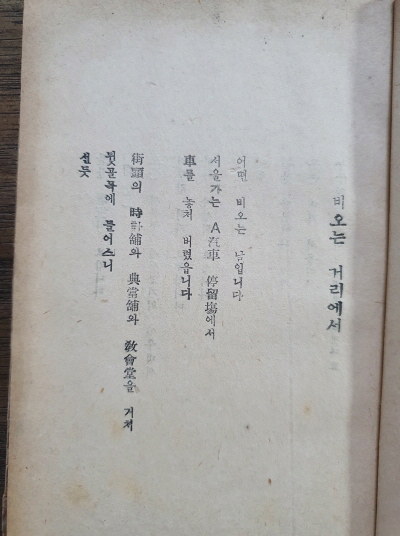 비오는 거리에서
어떤 비오는 날입니다
서울가는 A汽車 停留場에서
車를 놓처 버렸읍니다
街頭의 時計舖와 典當舖와 敎會堂을 거처
뒷골목에 들어스니
선듯